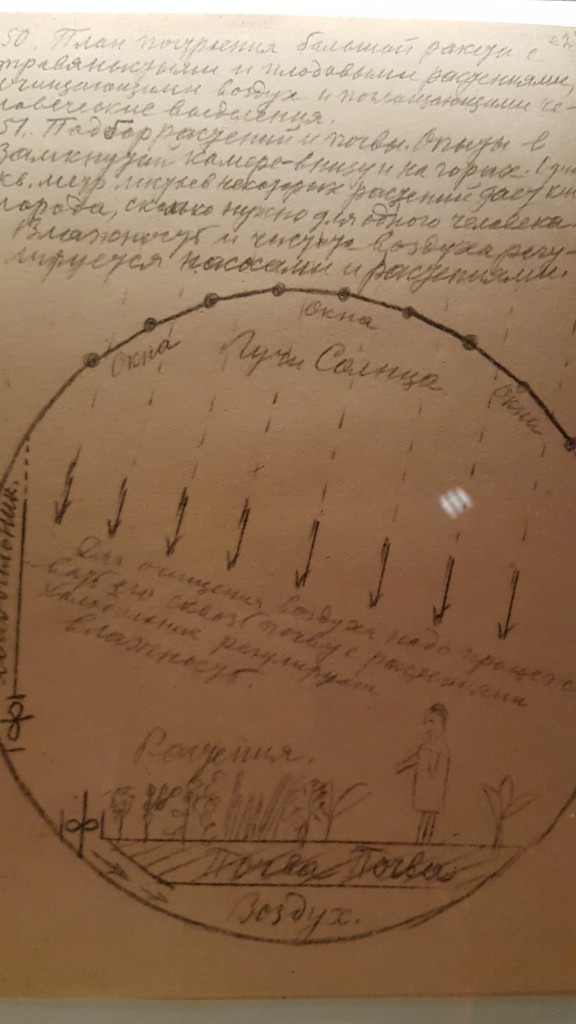 50. План построения большой ракеты с
травянистыми и плодовыми растениями,
очищающими воздух и поглощающими че-
ловеческие выделения.
51. Подбор растений и почвы. Опыты в
замкнутой камере-внизу и на горах. 1
кв. метр листьев некоторых растений дает кис
лорода, сколько нужно для одного человека.
Влажность и чистота воздуха регу-
лируется насосами и растениями.
Окна
Окна
Лучи Солнца
Окна
Холодильник.
Для очищения воздуха надо
его сквозь почву с растениями
Холодильник регулирует
влажность.
Растения.
Почва Почва
Воздух.